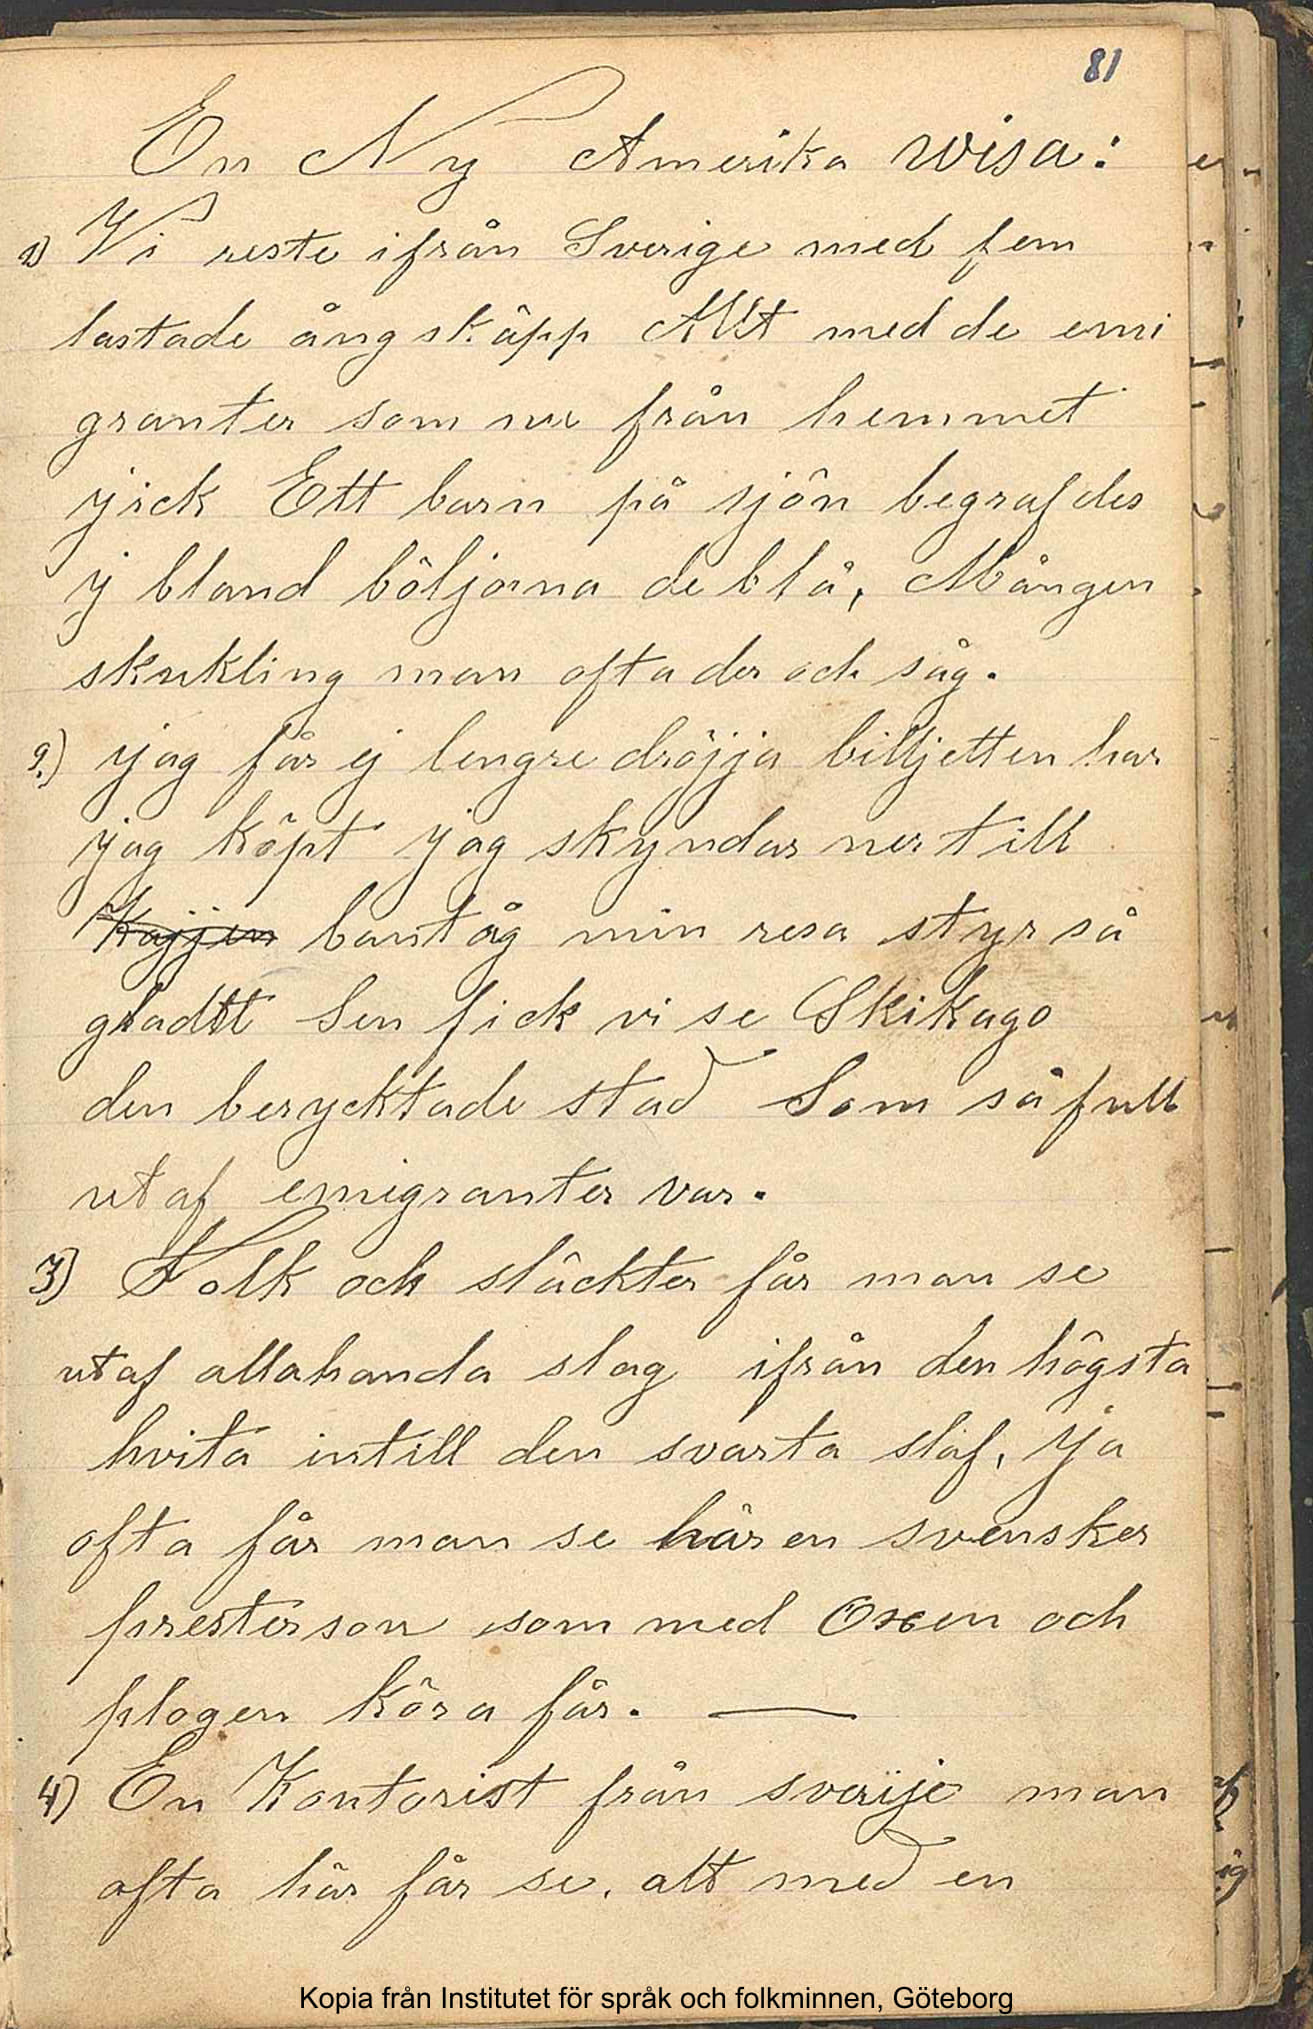 81
En Ny Amerika wisa:
1) Vi reste ifrån Sverige med fem
lastade ångskäpp Allt med de emi
granter som nu från hemmet
jick Ett barn på sjön begrafdes
ij bland böljorna de blå, Mången
skukling man ofta der och såg.
2.) jag får ej lengre dröjja billjetten har
jag köpt jag skyndar ner till
Kajjen bantåg min resa styr så
gladtt Sen fick vi se Skikago
den berycktade stad Som så full
utaf emigranter var.
3) Folk och släckter får man se
utaf allahanda slag ifrån den högsta
hvita intill den svarta slaf, Ja
ofta får man se här en svensker
presterson som med Oxen och
plogen köra får. —
4) En Kontorist från sverije man
ofta här får se. allt med en
Kopia från Institutet för språk och folkminnen, Göteborg